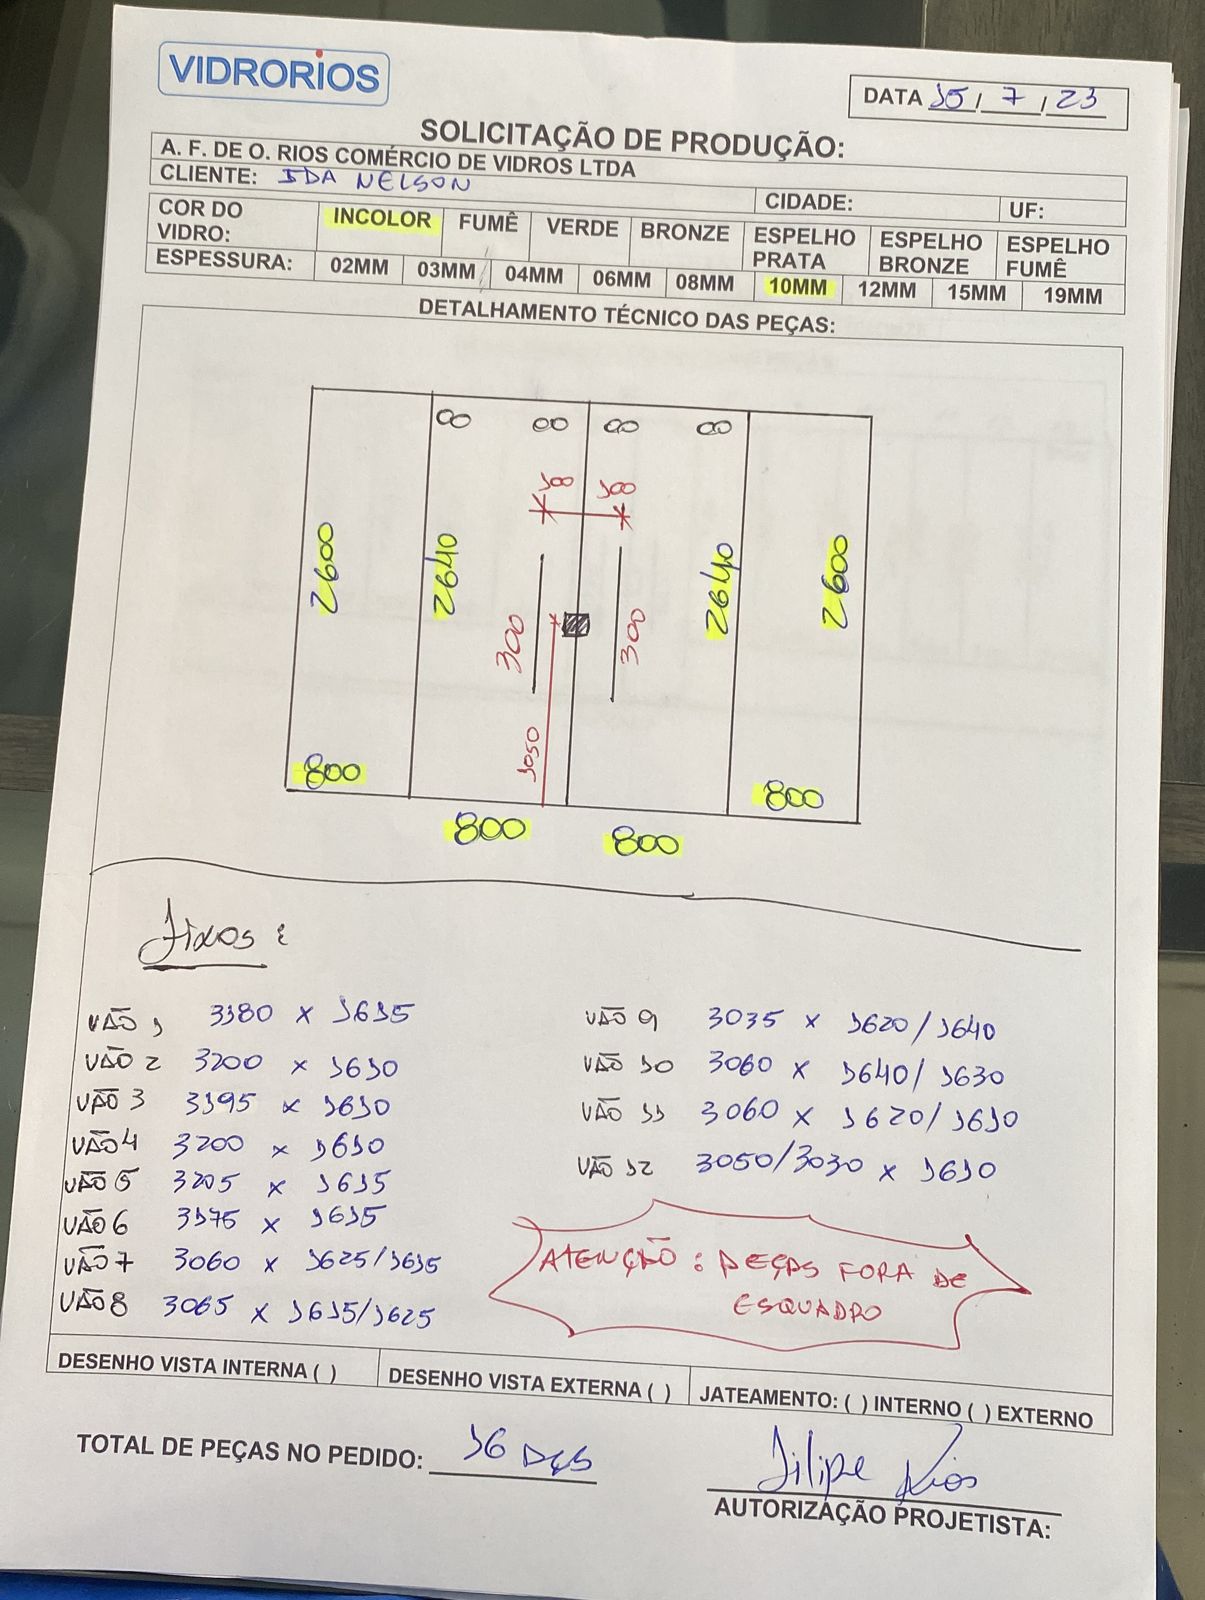 VIDRORIOS
DATA 15/7/23
SOLICITAÇÃO DE PRODUÇÃO:
A. F. DE O. RIOS COMÉRCIO DE VIDROS LTDA
CLIENTE: IDA NELSON
CIDADE: UF:
COR DO VIDRO: INCOLOR FUMÊ VERDE BRONZE ESPELHO PRATA ESPELHO BRONZE ESPELHO FUMÊ
ESPESSURA: 02MM 03MM 04MM 06MM 08MM 10MM 12MM 15MM 19MM
DETALHAMENTO TÉCNICO DAS PEÇAS:
100 100
2600 2640 2640 2600
300 300
1050
800 800
800 800
Fixos:
VÃO 1 3180 x 1615
VÃO 2 3200 x 1610
VÃO 3 3195 x 1610
VÃO 4 3200 x 1610
VÃO 5 3205 x 1615
VÃO 6 3175 x 1615
VÃO 7 3060 x 1625/1615
VÃO 8 3065 x 1615/1625
VÃO 9 3035 x 1620/1640
VÃO 10 3060 x 1640/1630
VÃO 11 3060 x 1620/1610
VÃO 12 3050/3030 x 1610
ATENÇÃO: PEÇAS FORA DE
ESQUADRO
DESENHO VISTA INTERNA ( ) DESENHO VISTA EXTERNA ( ) JATEAMENTO: ( ) INTERNO ( ) EXTERNO
TOTAL DE PEÇAS NO PEDIDO: 16 PÇS
Filipe Rios
AUTORIZAÇÃO PROJETISTA: